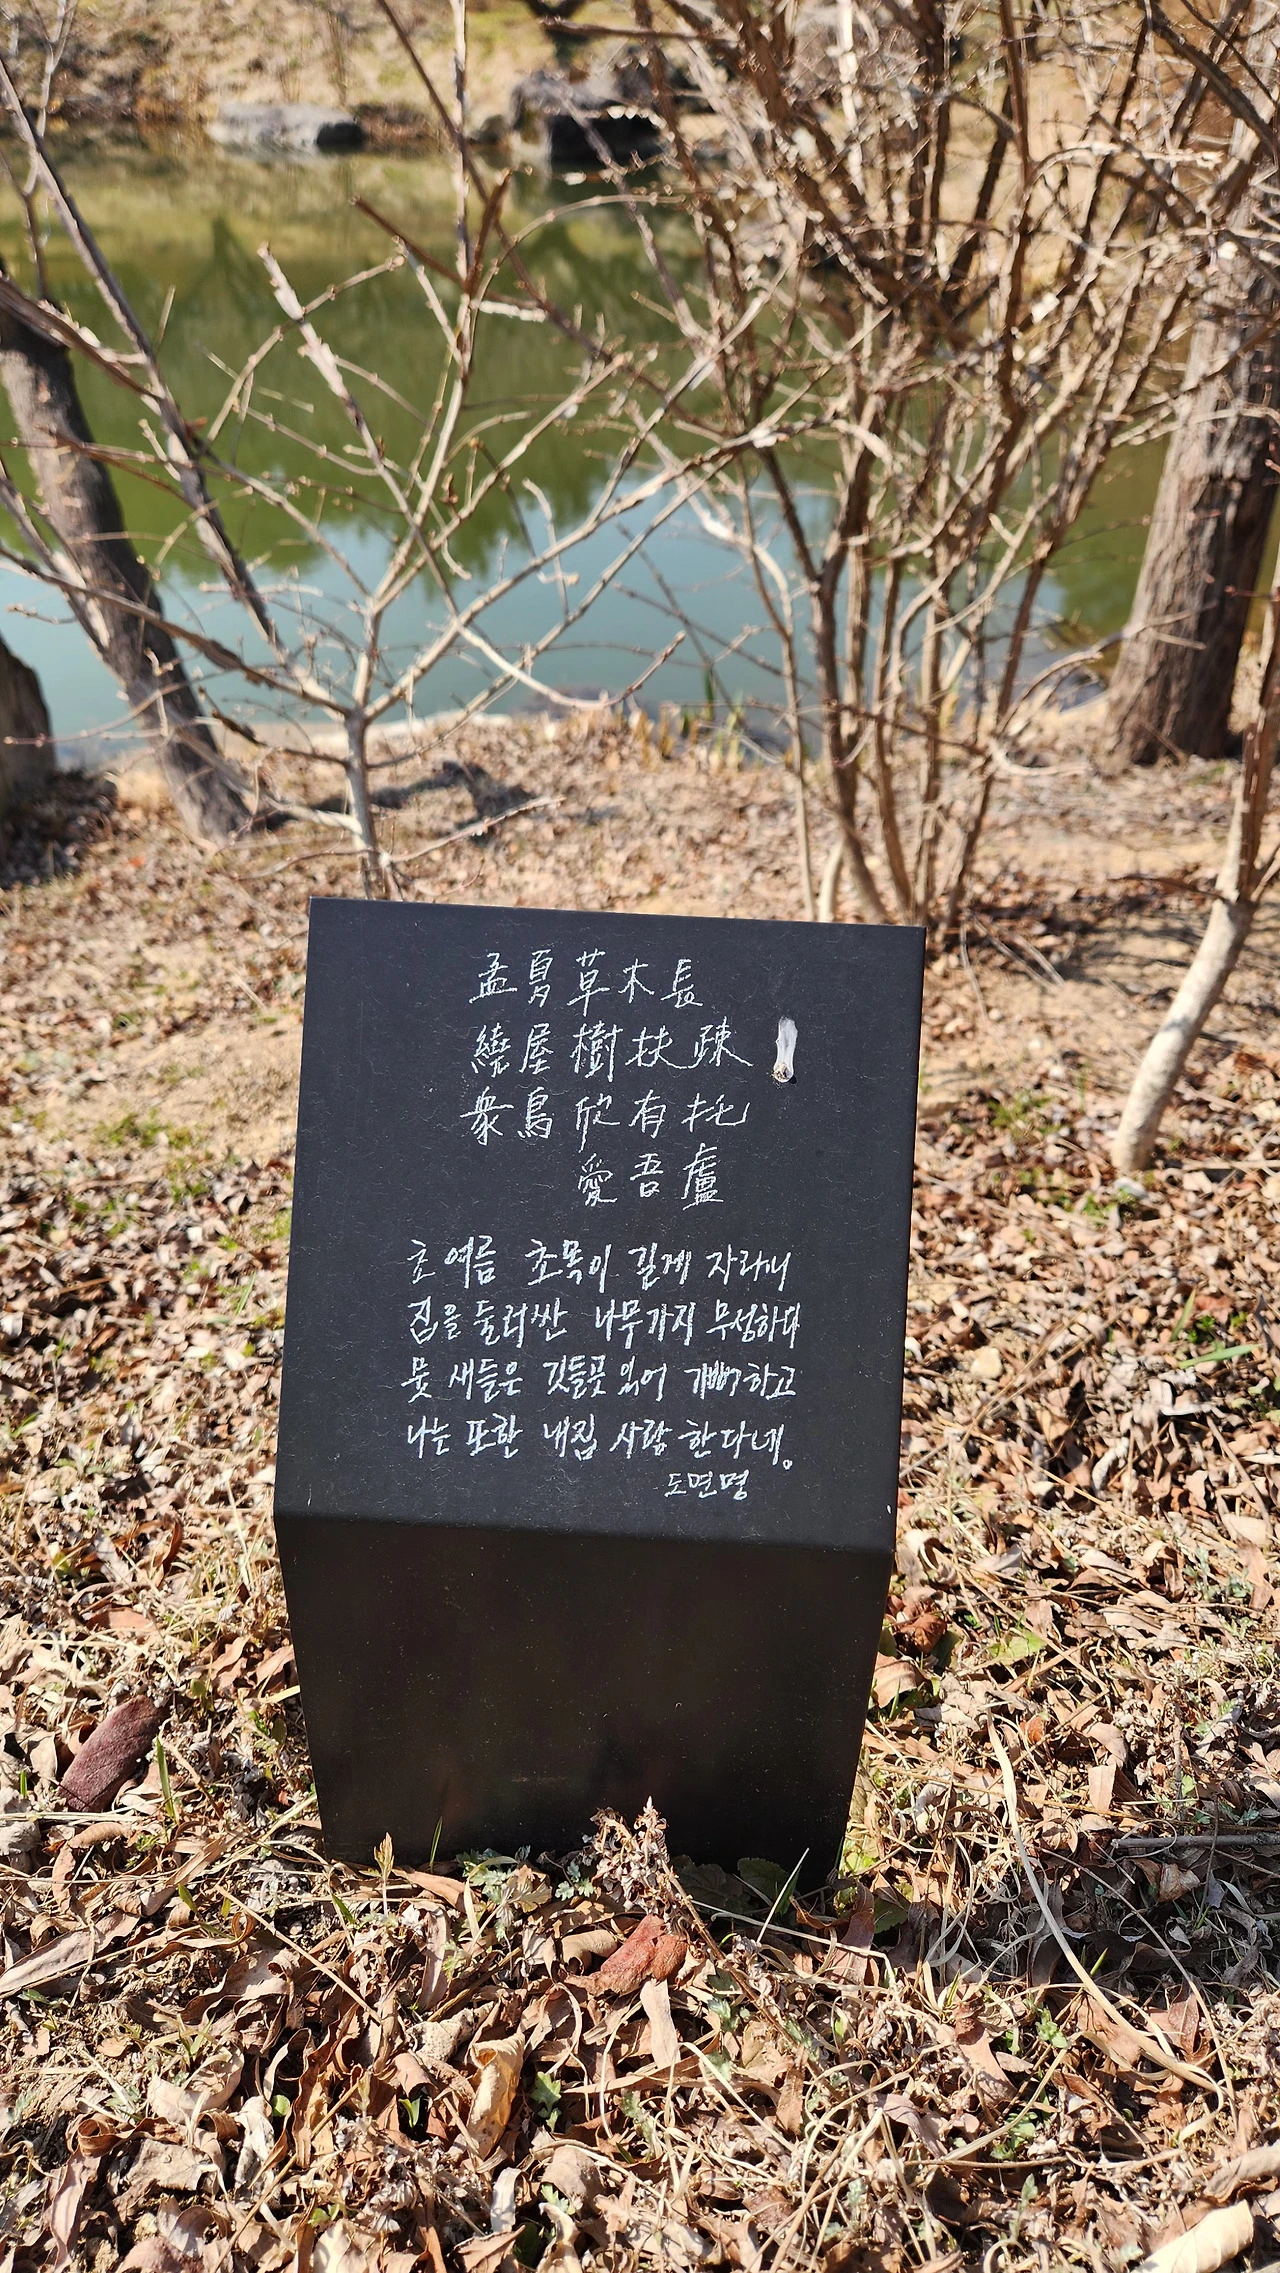 孟夏草木長
繞屋樹扶疎
衆鳥欣有托
愛吾盧
초여름 초목이 길게 자라니
집을 둘러싼 나무가지 무성하다
뭇 새들은 깃들곳 있어 기뻐하고
나는 또한 내집 사랑 한다네。
도면명